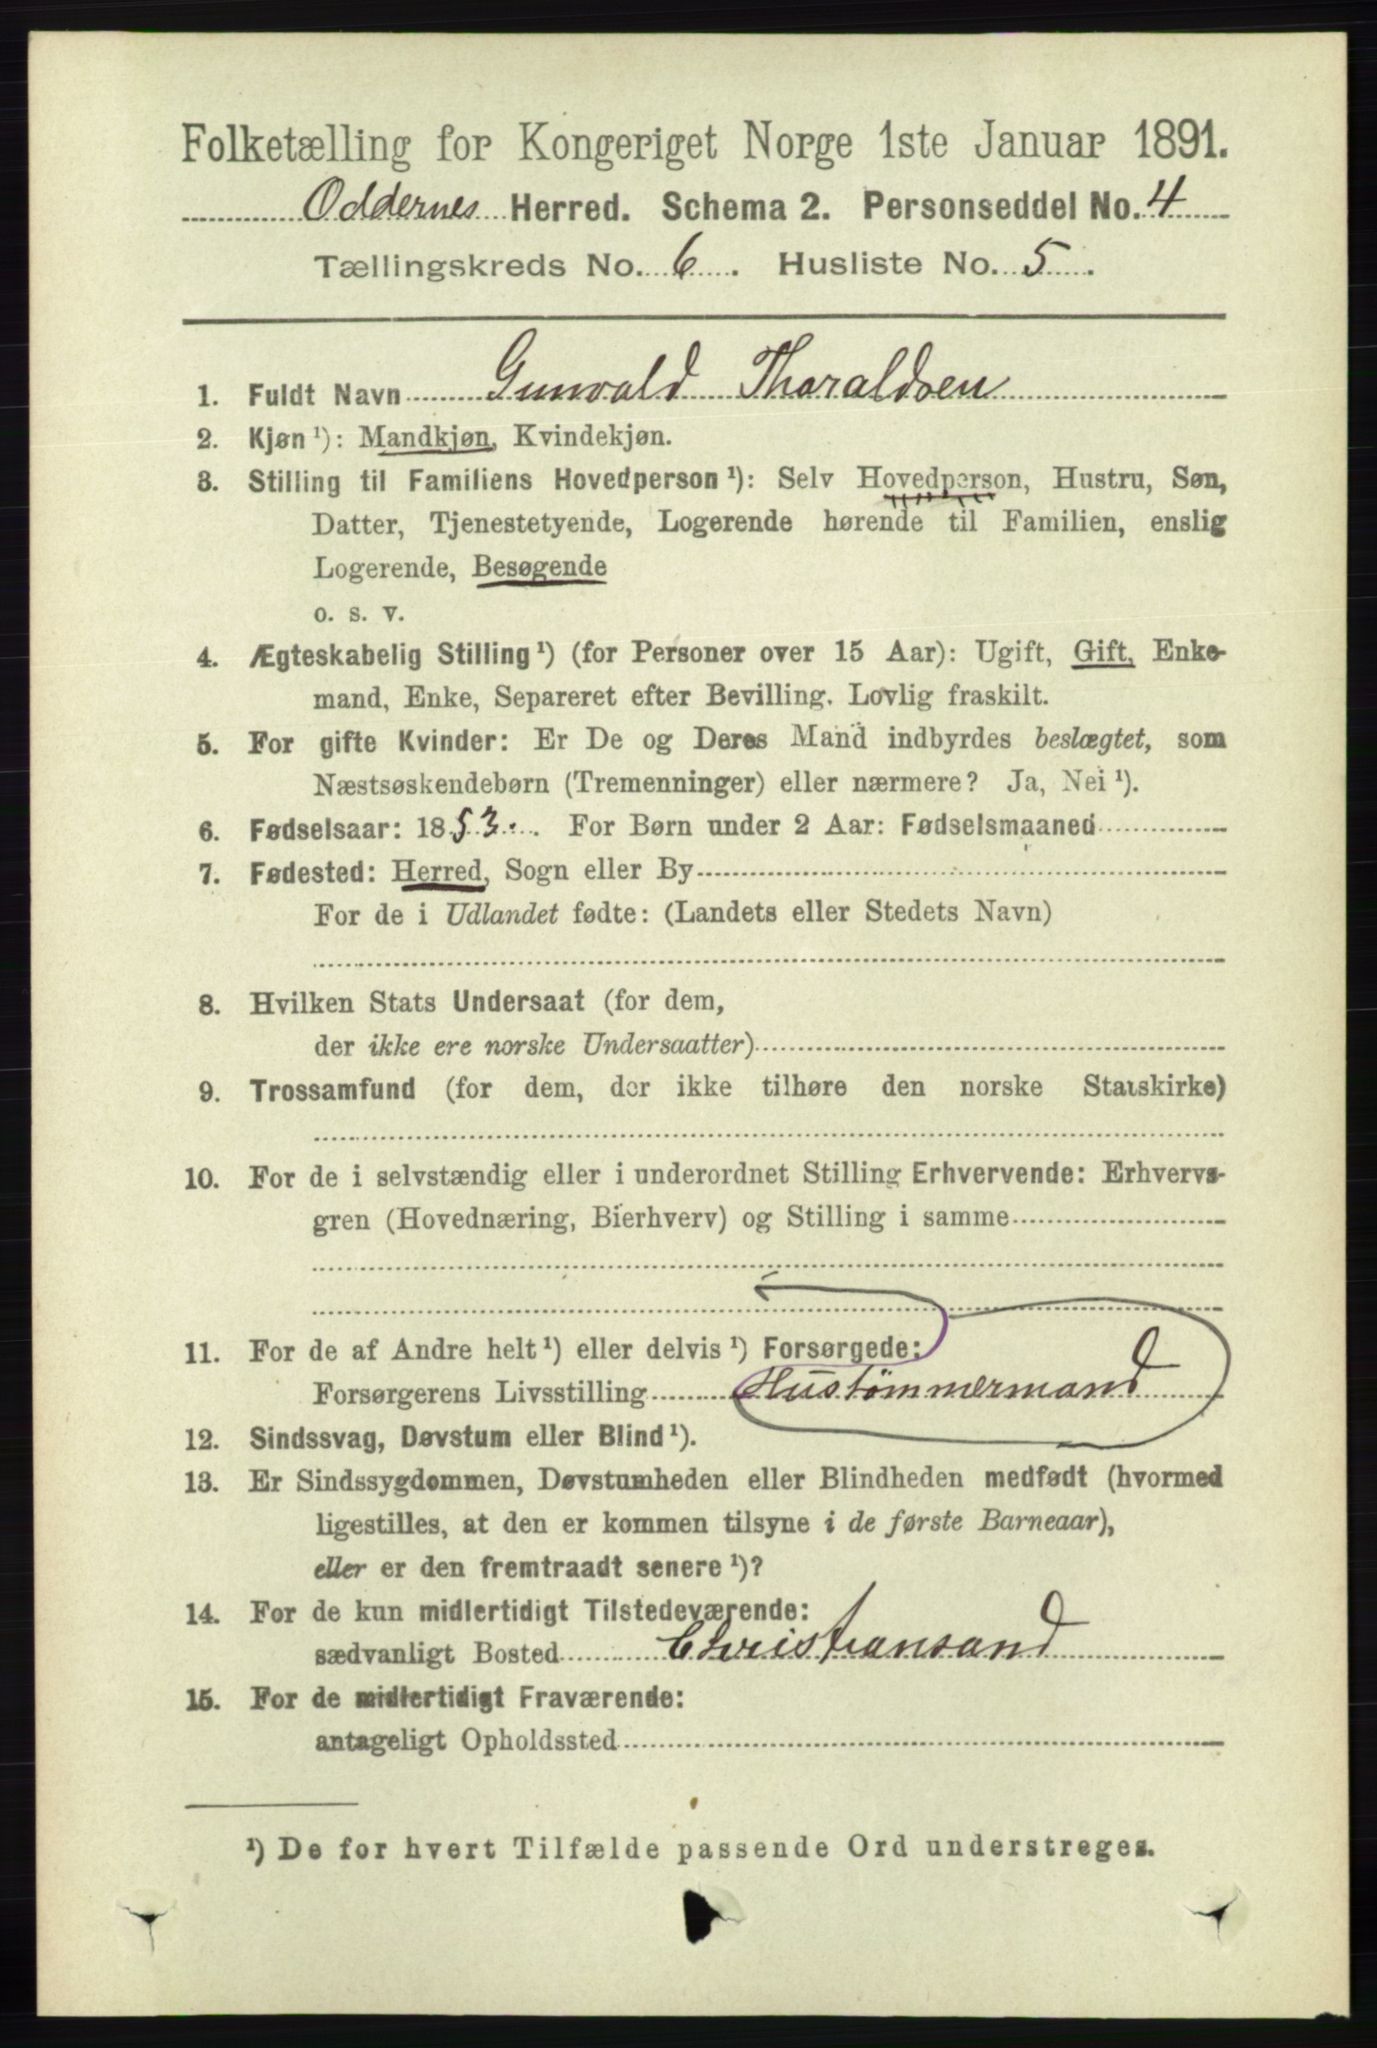 Folketælling for Kongeriget Norge 1ste Januar 1891.
Oddernes Herred. Schema 2. Personseddel No. 4
Tællingskreds No. 6. Husliste No. 5.
1. Fuldt Navn Gunvald Tharaldsen
2. Kjøn ¹): Mandkjøn, Kvindekjøn.
3. Stilling til Familiens Hovedperson ¹): Selv Hovedperson, Hustru, Søn,
Datter, Tjenestetyende, Logerende hørende til Familien, enslig
Logerende, Besøgende
o. s. v.
4. Ægteskabelig Stilling ¹) (for Personer over 15 Aar): Ugift, Gift, Enke-
mand, Enke, Separeret efter Bevilling. Lovlig fraskilt.
5. For gifte Kvinder: Er De og Deres Mand indbyrdes beslægtet, som
Næstsøskendebørn (Tremenninger) eller nærmere? Ja, Nei ¹).
6. Fødselsaar: 1853. For Børn under 2 Aar: Fødselsmaaned
7. Fødested: Herred, Sogn eller By
For de i Udlandet fødte: (Landets eller Stedets Navn)
8. Hvilken Stats Undersaat (for dem,
der ikke ere norske Undersaatter)
9. Trossamfund (for dem, der ikke tilhøre den norske Statskirke)
10. For de i selvstændig eller i underordnet Stilling Erhvervende: Erhvervs-
gren (Hovednæring, Bierhverv) og Stilling i samme
11. For de af Andre helt ¹) eller delvis ¹) Forsørgede:
Forsørgerens Livsstilling Hustømmermand
12. Sindssvag, Døvstum eller Blind ¹).
13. Er Sindssygdommen, Døvstumheden eller Blindheden medfødt (hvormed
ligestilles, at den er kommen tilsyne i de første Barneaar),
eller er den fremtraadt senere ¹)?
14. For de kun midlertidigt Tilstedeværende:
sædvanligt Bosted Christiansand
15. For de midlertidigt Fraværende:
antageligt Opholdssted
¹) De for hvert Tilfælde passende Ord understreges.